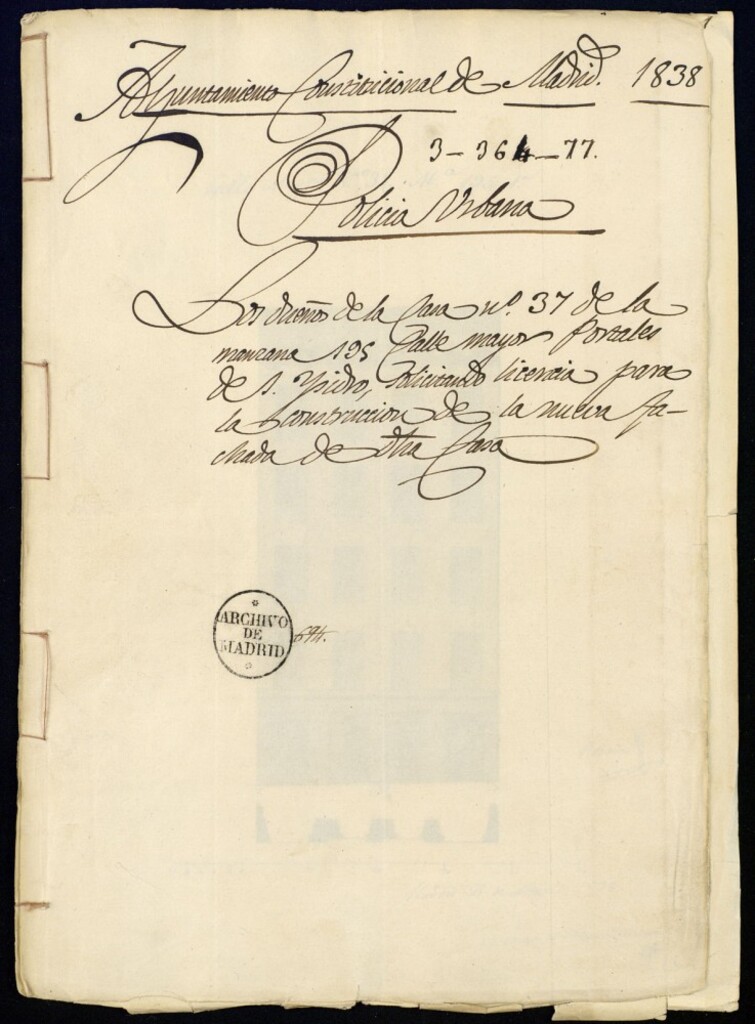 Ayuntamiento Constitucional de Madrid. 1838
3-364-77.
Policia Urbana
Los dueños de la Casa nº. 37 de la
manzana 195 Calle mayor Portales
de S. Ysidro, solicitando licencia para
la construccion de la nueva fa-
chada de dha Casa
ARCHIVO
DE
MADRID
694.